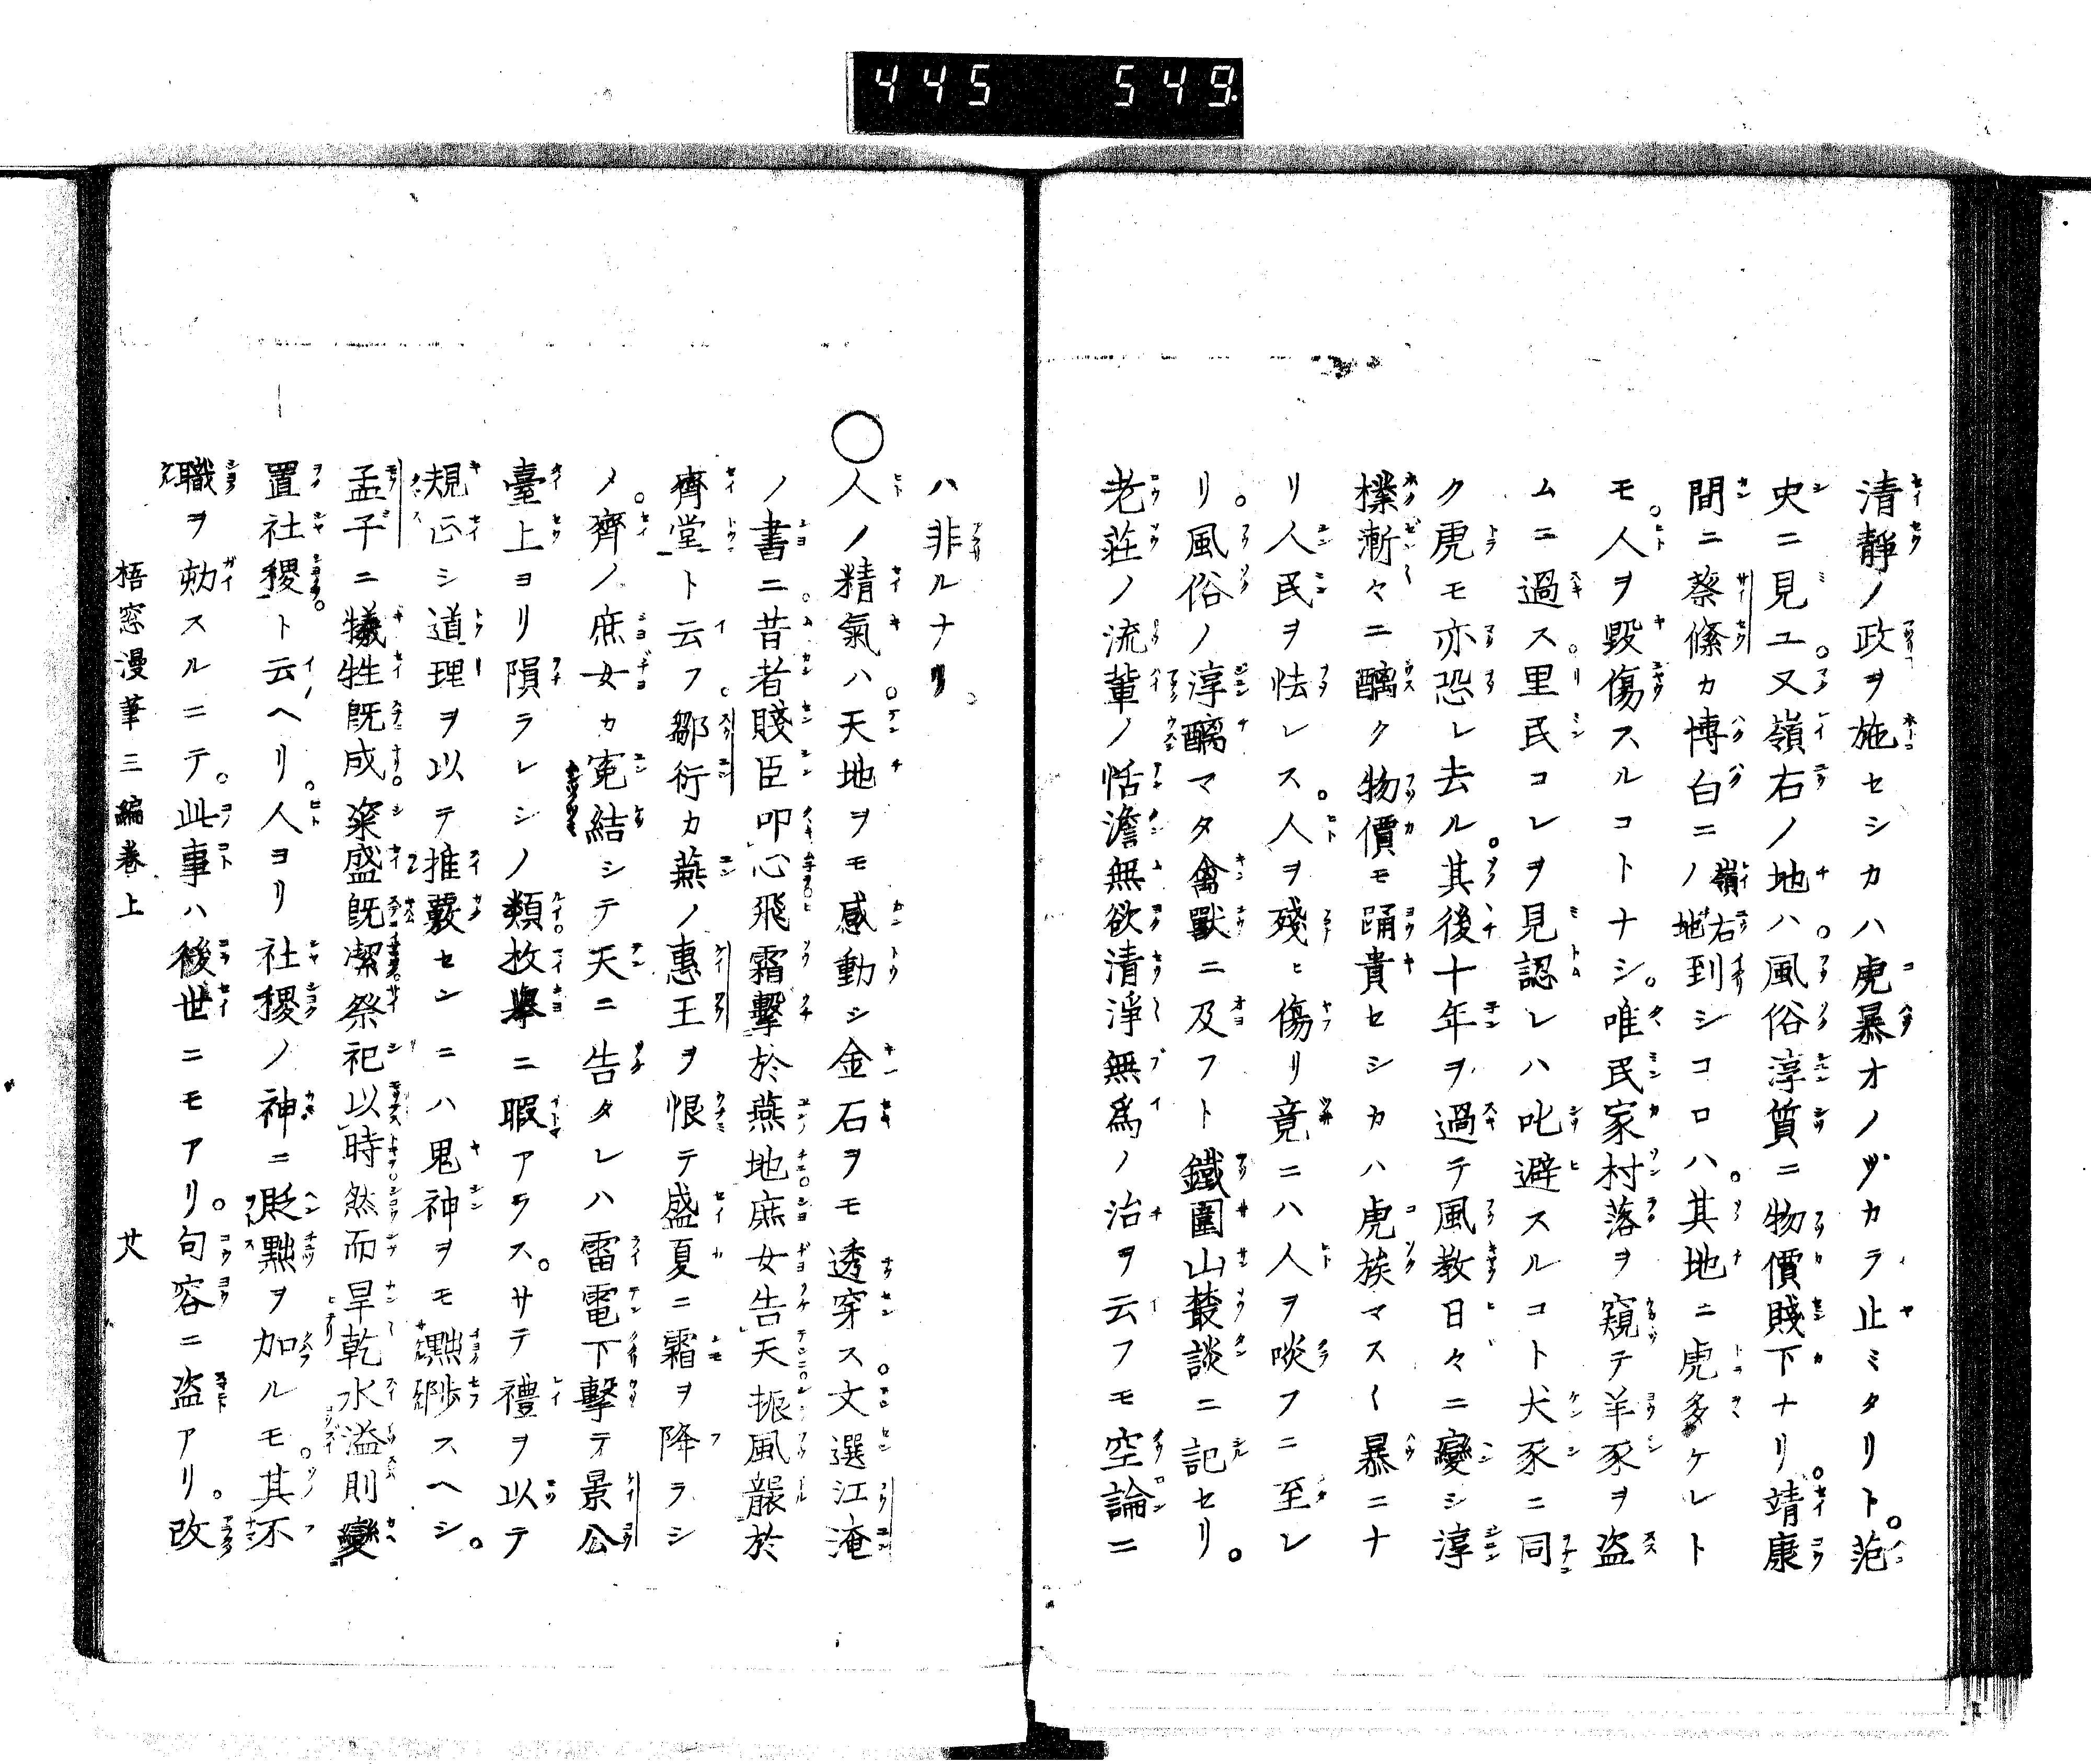 445 549
清靜ノ政ヲ施セシカハ虎暴オノヅカラ止ミタリト。范
史ニ見ユ。又嶺右ノ地ハ。風俗淳質ニ物價賤下ナリ。靖康
間ニ蔡絛カ博白ニノ嶺右地到シコロハ。其地ニ虎多ケレト
モ。人ヲ毀傷スルコトナシ。唯民家村落ヲ窺テ羊豕ヲ盗
ムニ過ス。里民コレヲ見認レハ叱避スルコト犬豕ニ同
ク虎モ亦恐レ去ル。其後十年ヲ過テ風教日々ニ變シ淳
樸漸々ニ醨ク物價モ踊貴セシカハ虎族マス〱暴ニナ
リ人民ヲ怯レス。人ヲ殘ヒ傷リ竟ニハ人ヲ啖フニ至レ
リ。風俗ノ淳醨マタ禽獸ニ及フト鐵圍山叢談ニ記セリ。
老莊ノ流輩ノ恬澹無欲清淨無爲ノ治ヲ云フモ空論ニ
ハ非ルナリ。
〇人ノ精氣ハ。天地ヲモ感動シ金石ヲモ透穿ス。文選江淹
ノ書ニ。昔者賤臣叩心飛霜擊於燕地庶女告天振風襲於
齊堂ト云フ。鄒衍カ燕ノ惠王ヲ恨テ盛夏ニ霜ヲ降ラシ
メ。齊ノ庶女カ寃結シテ天ニ告タレハ雷電下擊テ景公
臺上ヨリ隕ラレシノ類。枚擧ニ暇アラス。サテ禮ヲ以テ
規正シ道理ヲ以テ推覈センニハ鬼神ヲモ黜陟スヘシ。
孟子ニ犧牲既成。粢盛既潔。祭祀以時然而旱乾水溢則變
置社稷ト云ヘリ。人ヨリ社稷ノ神ニ貶黜ヲ加ルモ。其不
職ヲ劾スルニテ。此事ハ後世ニモアリ。句容ニ盗アリ。改
梧窓漫筆三編卷上 廿